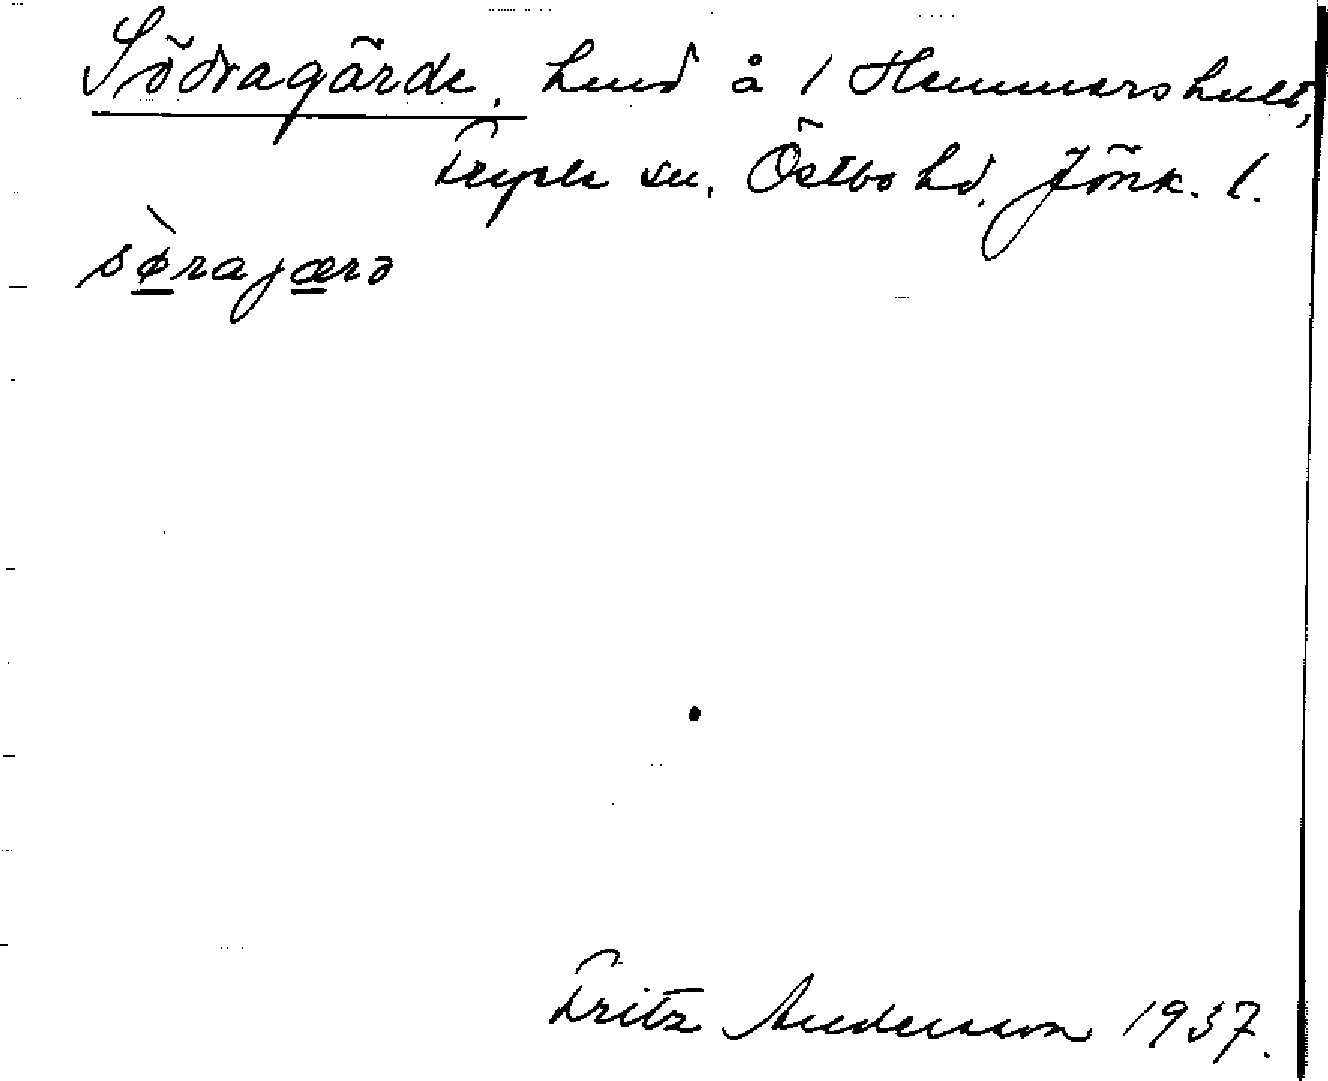 Södragärde, hmd å 1 Hammarshult,
Fryele sn, Östbo hd, Jönk. l.
sø̀rajærd
Fritz Andersson 1937.